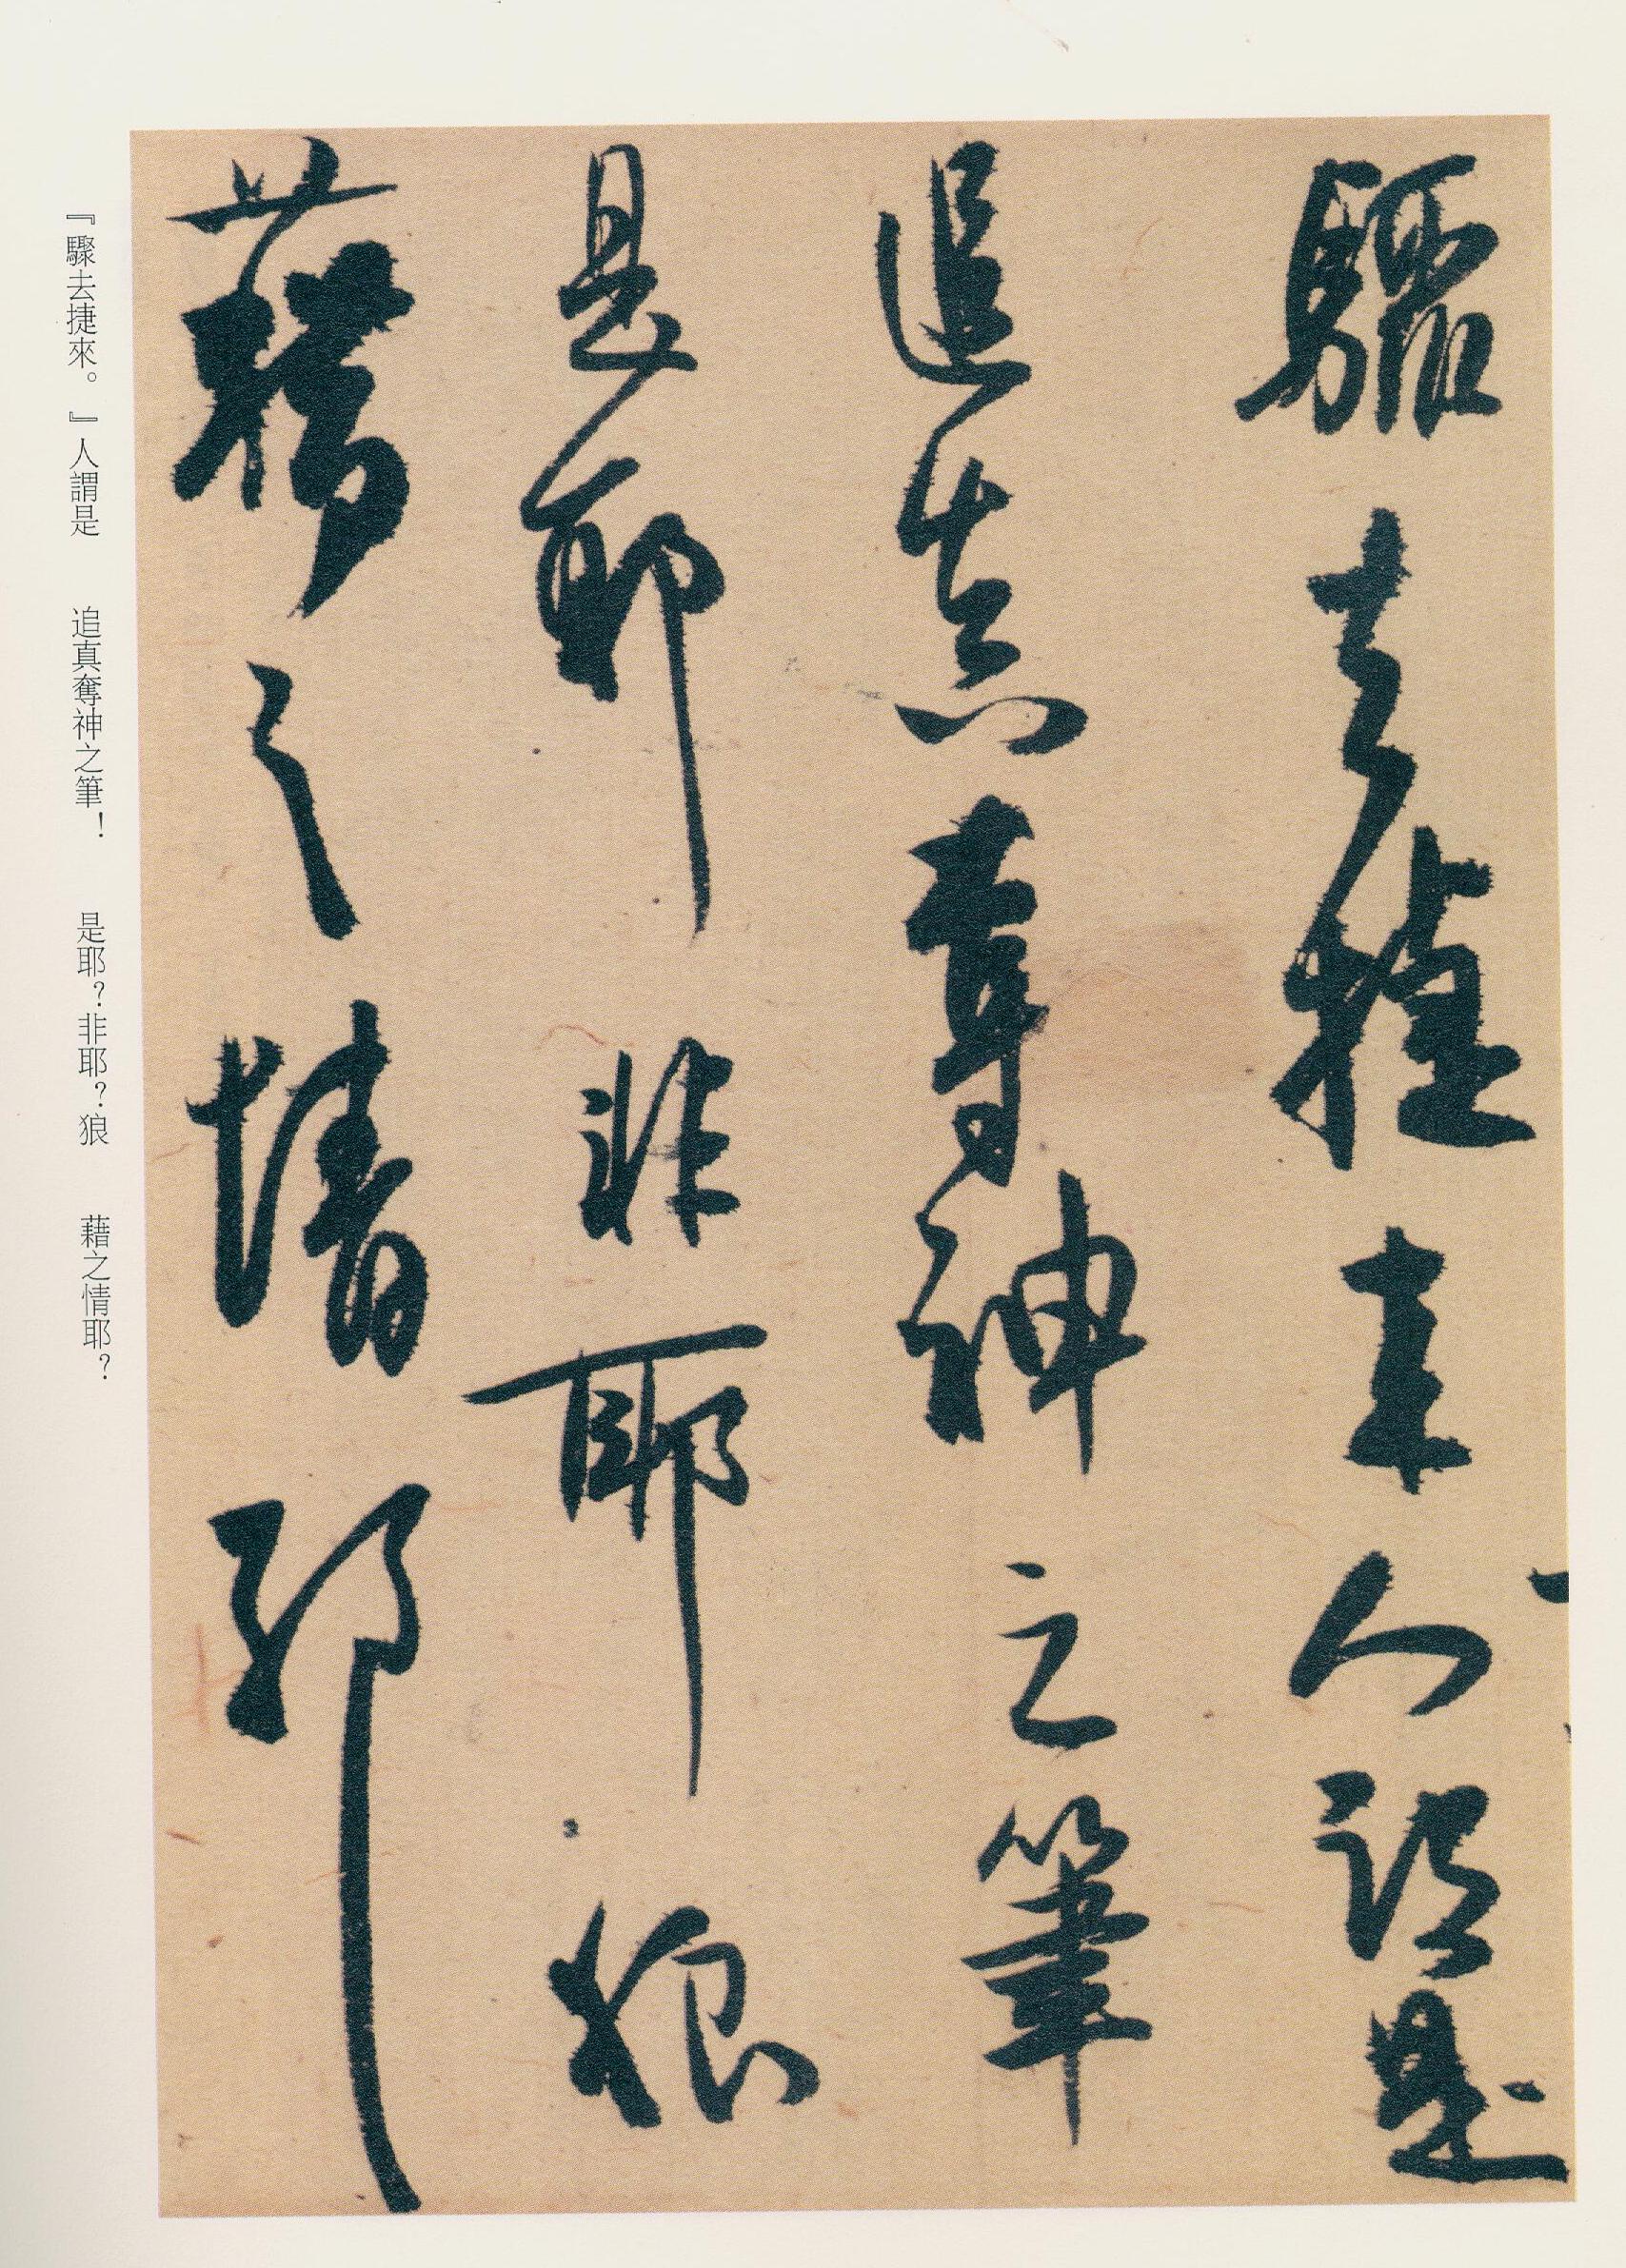 驟去捷來人謂是
追真奪神之筆
是耶非耶狼
藉之情耶
『驟去捷來。』人謂是　追真奪神之筆！　是耶？非耶？狼　藉之情耶？